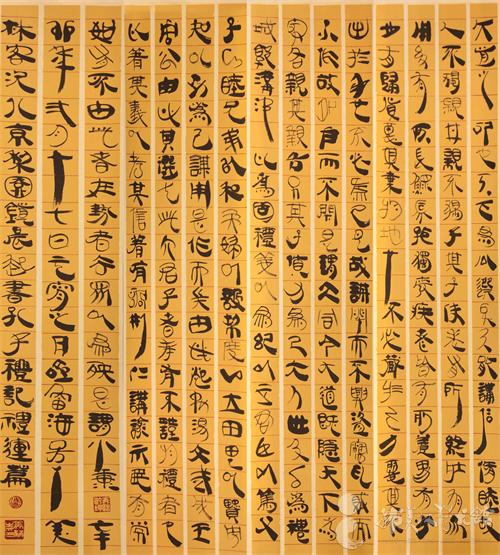 大道之行也天下為公選賢與能講信修睦故
人不獨親其親不獨子其子使老有所終壯有所
用幼有所長鰥寡孤獨廢疾者皆有所養男有分
女有歸貨惡其棄於地也不必藏於己力惡其不
出於身也不必為己是故謀閉而不興盜竊亂賊而
不作故外戶而不閉是謂大同今大道既隱天下為
家各親其親各子其子貨力為己大人世及以為禮
城郭溝池以為固禮義以為紀以正君臣以篤父
子以睦兄弟以和夫婦以設制度以立田里以賢勇
知以功為己故謀用是作而兵由此起禹湯文武成王
周公由此其選也此六君子者未有不謹於禮者也
以著其義以考其信著有過刑仁講讓示民有常
如有不由此者在勢者去眾以為殃是謂小康辛
卯年弍月十七日之月富海君一笑
林客京園鏡晨書孔子禮記禮運篇